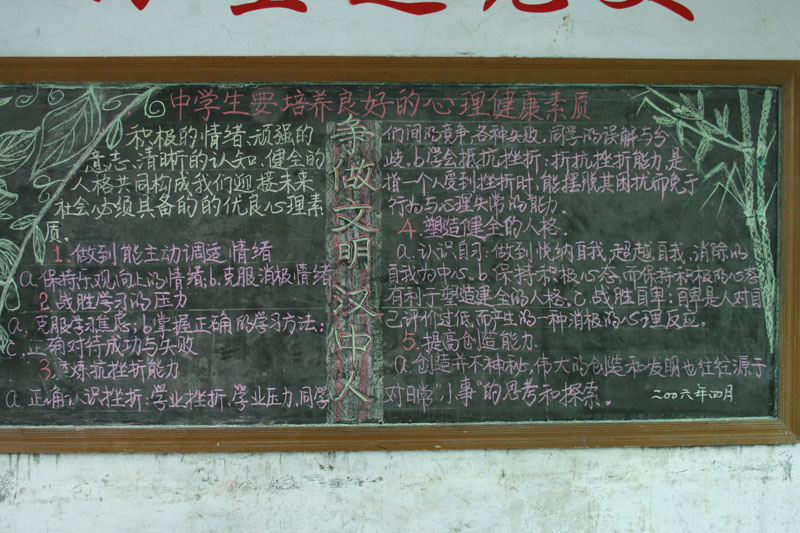 中学生要培养良好的心理健康素质
积极的情绪、顽强的
意志、清晰的认知、健全的
人格共同构成我们迎接未来
社会必须具备的的优良心理素
质。
1. 做到能主动调适情绪
a. 保持乐观向上的情绪; b. 克服消极情绪
2. 战胜学习的压力
a. 克服学习焦虑; b. 掌握正确的学习方法;
c. 正确对待成功与失败
3. 锻炼抗挫折能力
a. 正确认识挫折: 学业挫折、学业压力、同学
争做文明汉中人
们间的竞争、各种失败、同学的误解与分
歧。b. 学会抵抗挫折: 折抗挫折能力, 是
指一个人受到挫折时, 能摆脱其困扰而免于
行为与心理失常的能力。
4. 塑造健全的人格。
a. 认识自己: 做到悦纳自我, 超越自我, 消除以
自我为中心。b. 保持积极心态, 而保持积极的心态
有利于塑造健全的人格。c. 战胜自卑: 自卑是人对自
己评价过低而产生的一种消极的心理反应。
5. 提高创造能力
a. 创造并不神秘, 伟大的创造和发明也往往源于
对日常“小事”的思考和探索。
二〇〇六年四月